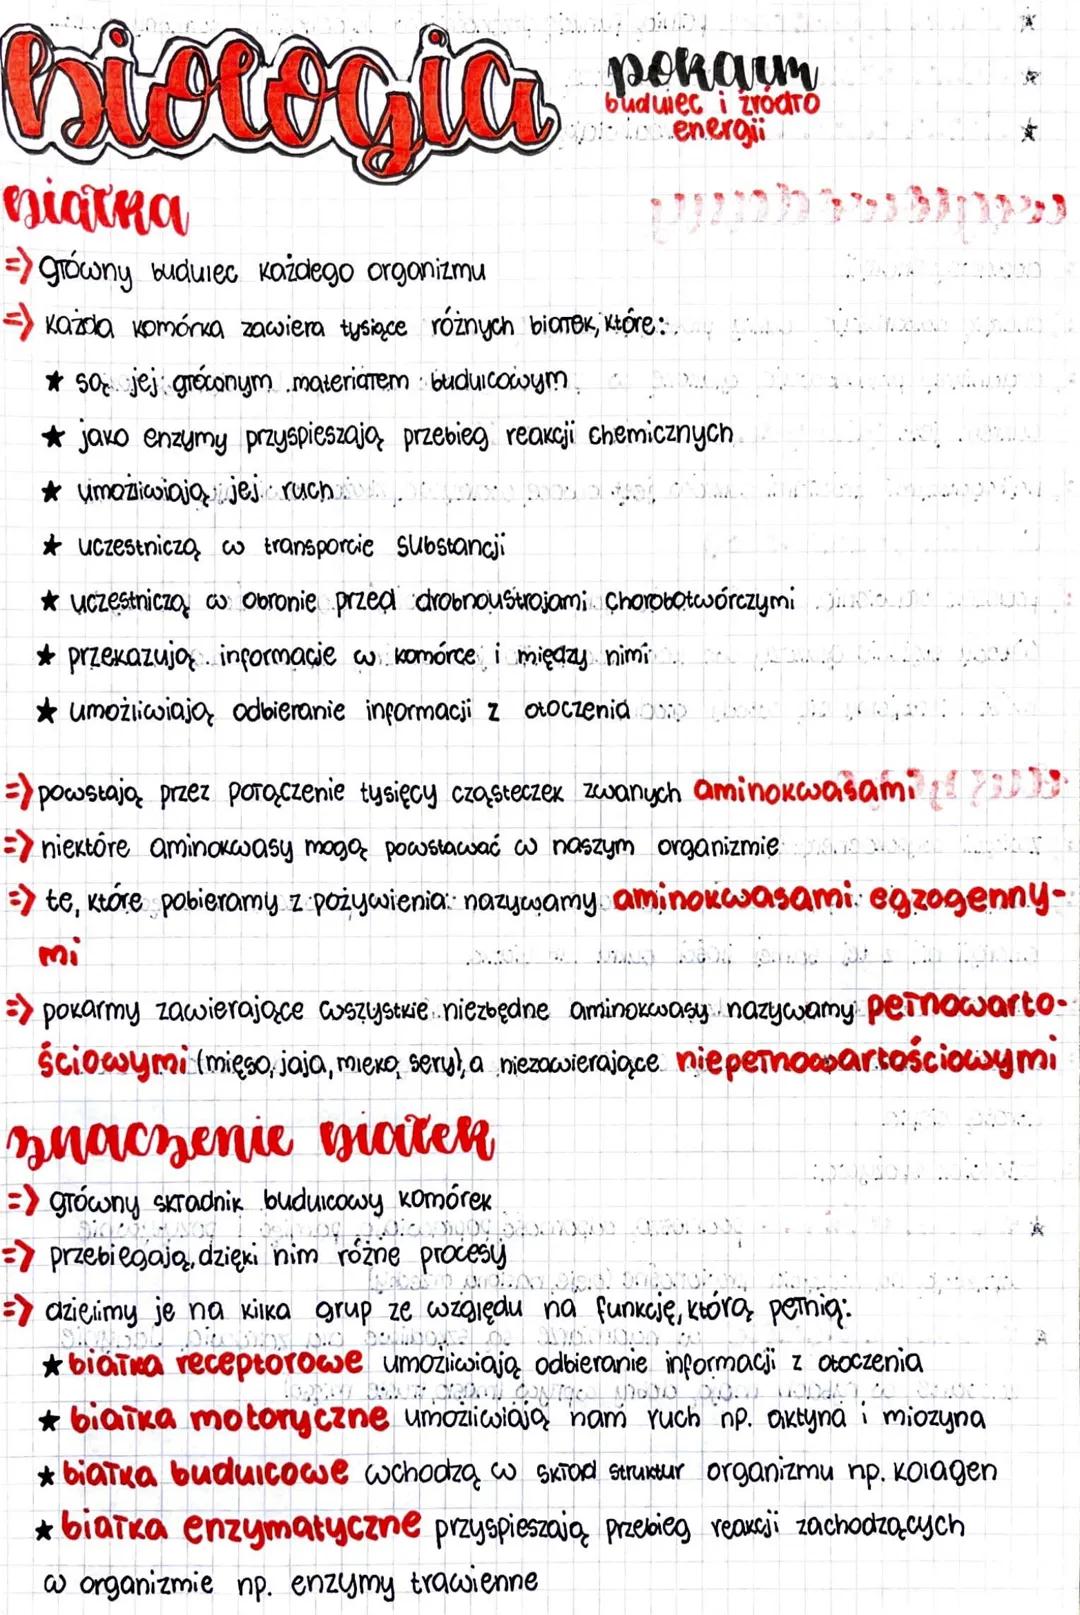 biologia
pokarm
budulec i źródło
energii
białka
=> główny budulec każdego organizmu
=> każda komórka zawiera tysiące różnych białek, które:
★ są jej głównym materiałem budulcowym
★ jako enzymy przyspieszają przebieg reakcji chemicznych
★ umożliwiają jej ruch
★ uczestniczą w transporcie substancji
★ uczestniczą w obronie przed drobnoustrojami chorobotwórczymi
★ przekazują informacje w komórce i między nimi
★ umożliwiają odbieranie informacji z otoczenia
=> powstają przez połączenie tysięcy cząsteczek zwanych aminokwasami
=> niektóre aminokwasy mogą powstawać w naszym organizmie
=> te, które pobieramy z pożywienia nazywamy aminokwasami egzogenny-
mi
=> pokarmy zawierające wszystkie niezbędne aminokwasy nazywamy pełnowarto-
ściowymi (mięso, jaja, mleko, sery), a niezawierające niepełnowartościowymi
znaczenie białek
=> główny składnik budulcowy komórek
=> przebiegają, dzięki nim różne procesy
=> dzielimy je na kilka grup ze względu na funkcję, którą pełnią:
★ białka receptorowe umożliwiają odbieranie informacji z otoczenia
★ białka motoryczne umożliwiają nam ruch np. aktyna i miozyna
★ białka budulcowe wchodzą w skład struktur organizmu np. kolagen
★ białka enzymatyczne przyspieszają przebieg reakcji zachodzących
w organizmie np. enzymy trawienne